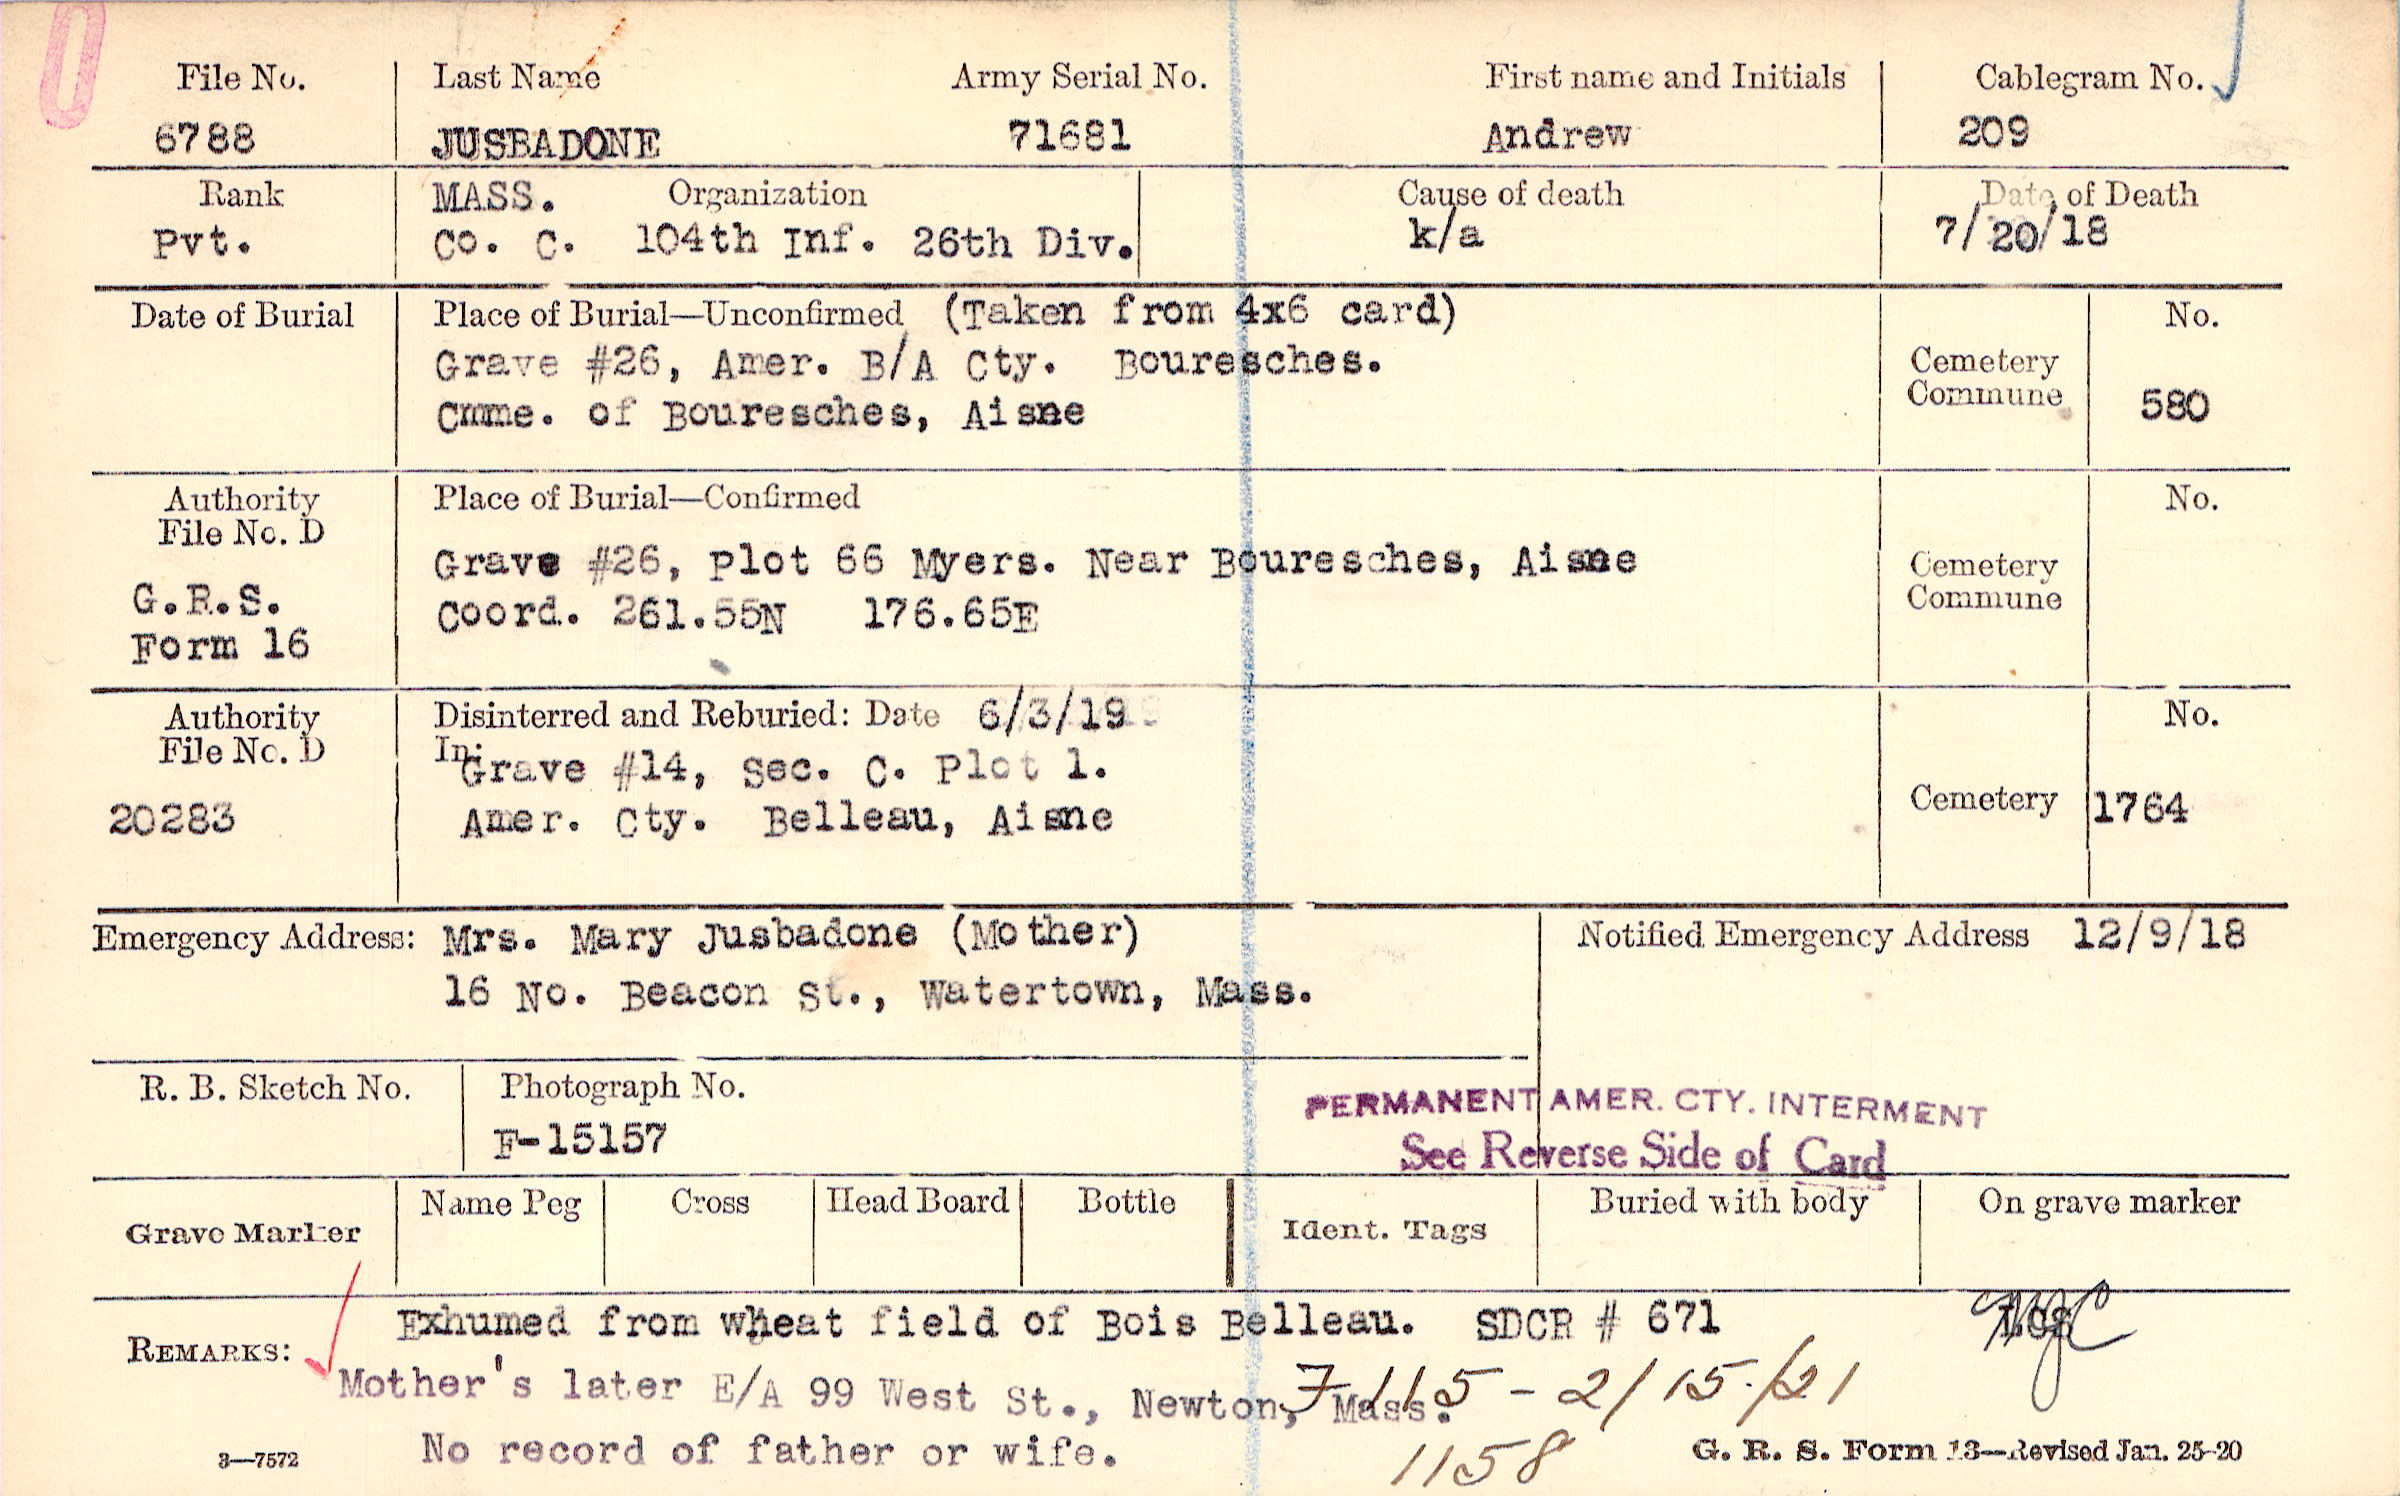 File No. Last Name Army Serial No. First name and Initials Cablegram No.
6788 JUSBADONE 71681 Andrew 209
Rank MASS. Organization Cause of death Date of Death
Pvt. Co. C. 104th Inf. 26th Div. k/a 7/20/18
Date of Burial Place of Burial—Unconfirmed (Taken from 4x6 card) No.
Grave #26, Amer. B/A Cty. Bouresches. Cemetery
Cmme. of Bouresches, Aisne Commune 580
Authority Place of Burial—Confirmed No.
File No. D
Grave #26, Plot 66 Myers. Near Bouresches, Aisne Cemetery
G.R.S. Coord. 261.55N 176.65E Commune
Form 16
Authority Disinterred and Reburied: Date 6/3/19 No.
File No. D In: Grave #14, Sec. C. Plot 1.
20283 Amer. Cty. Belleau, Aisne Cemetery 1764
Emergency Address: Mrs. Mary Jusbadone (Mother) Notified Emergency Address 12/9/18
16 No. Beacon St., Watertown, Mass.
R. B. Sketch No. Photograph No.
F-15157
PERMANENT AMER. CTY. INTERMENT
See Reverse Side of Card
Grave Marker Name Peg Cross Head Board Bottle Ident. Tags Buried with body On grave marker
REMARKS: Exhumed from wheat field of Bois Belleau. SDCR # 671
Mother's later E/A 99 West St., Newton, Mass. 7115 - 2/15/21
No record of father or wife. 1158
3—7572 G. R. S. Form 13—Revised Jan. 25-20